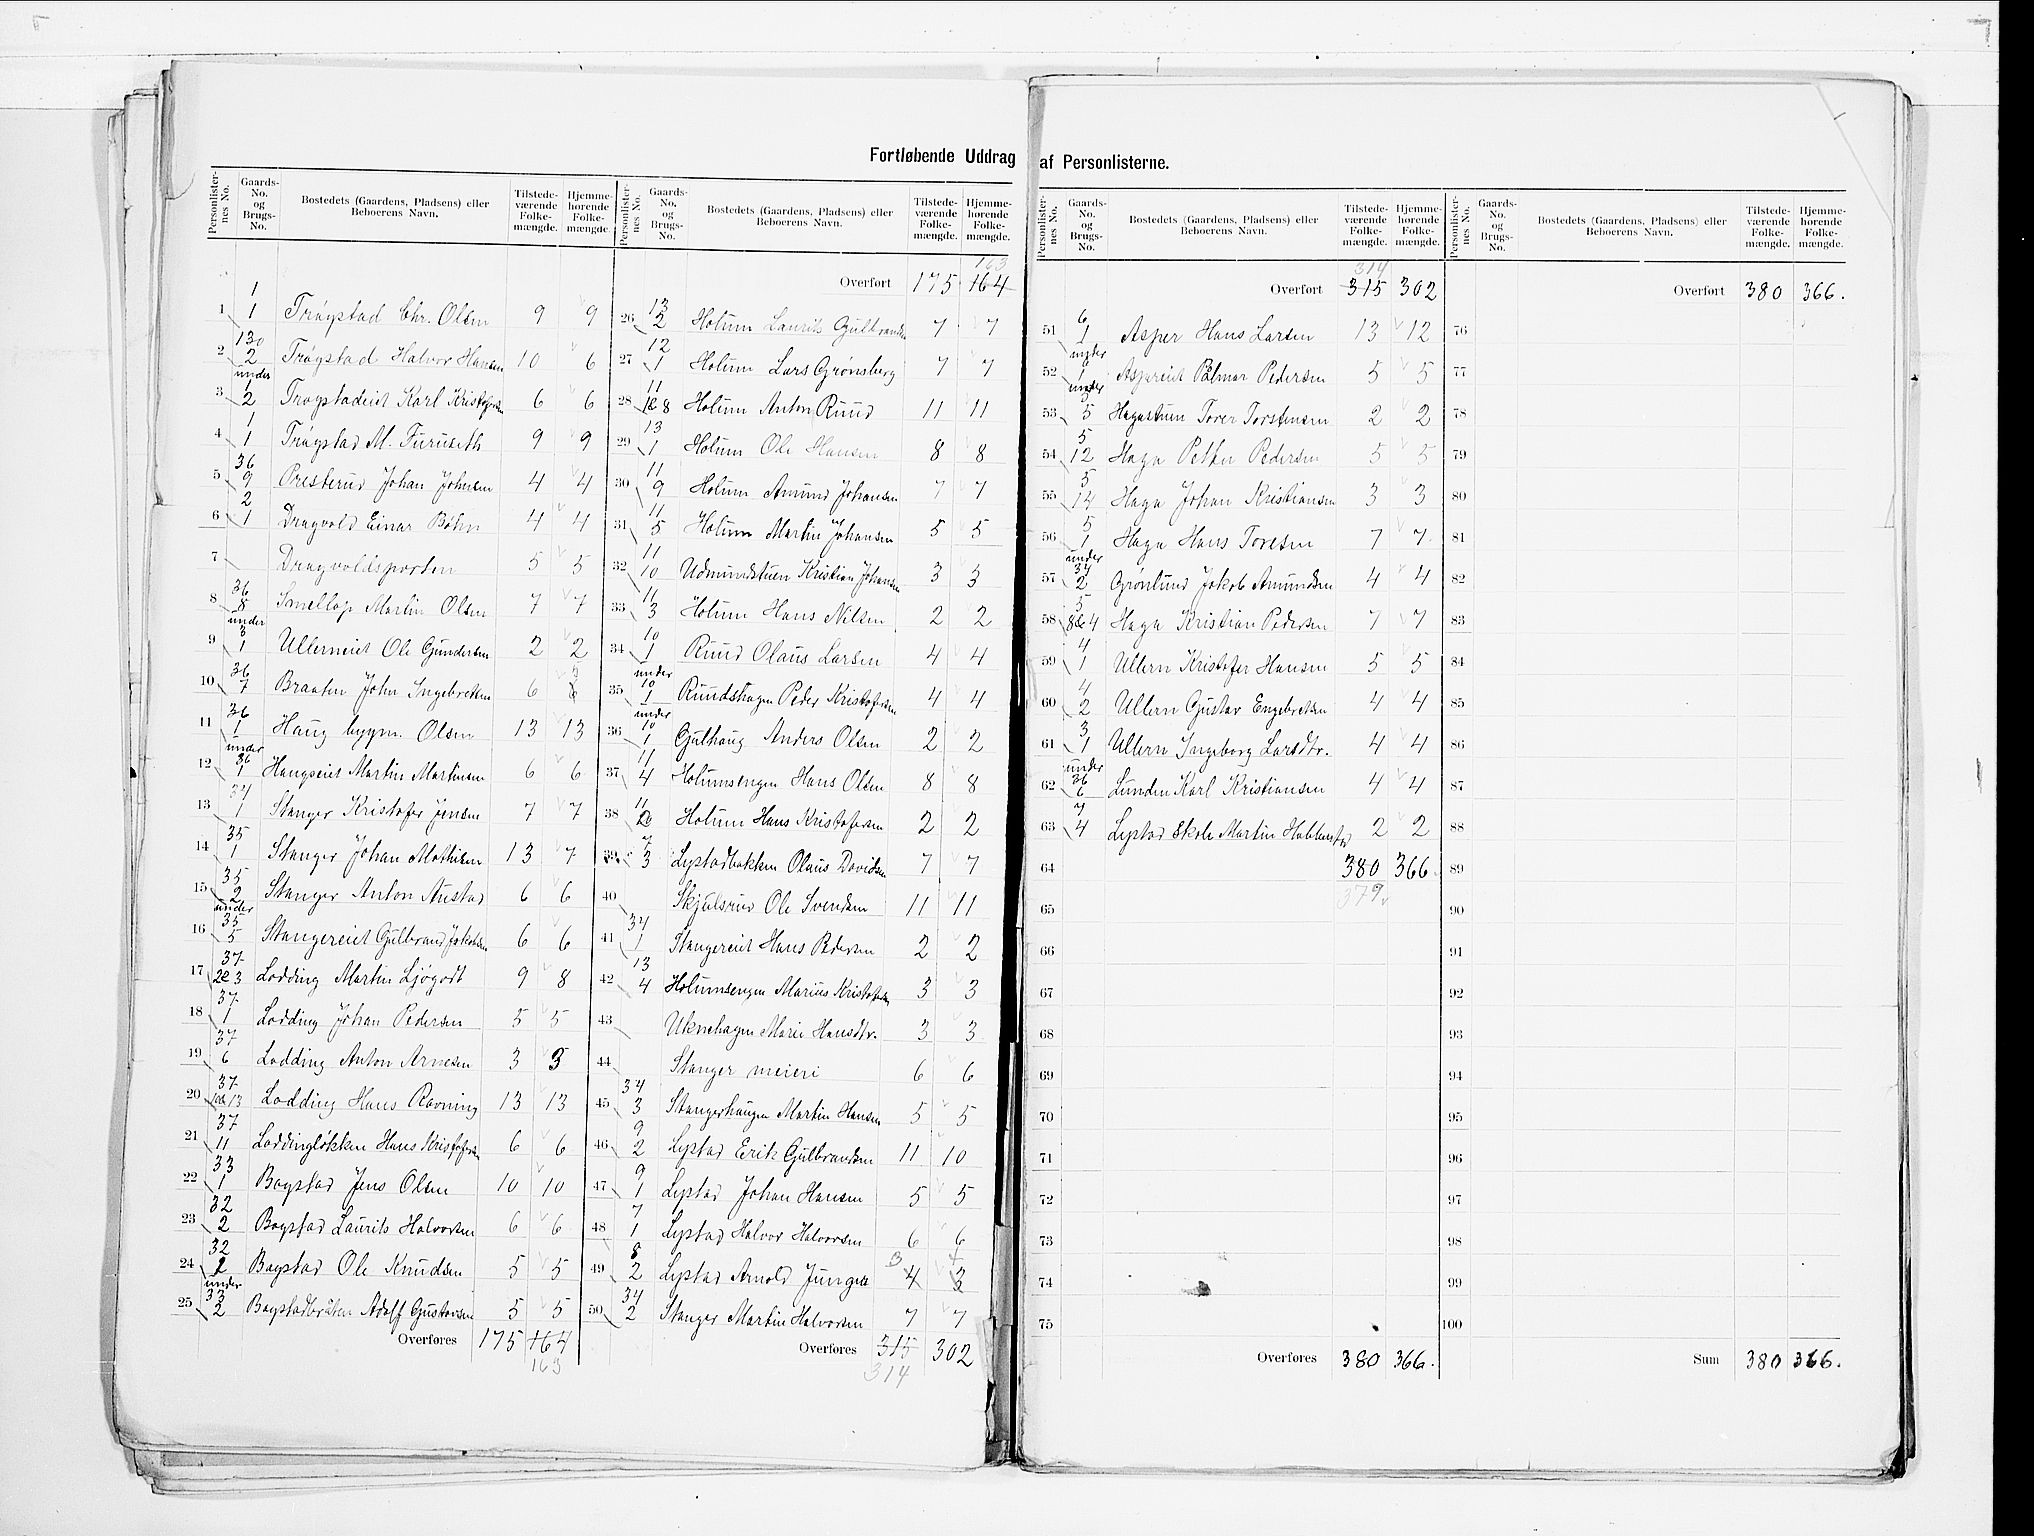 Fortløbende Uddrag af Personlisterne.
Personlister-nes No. Gaards-No. og Brugs-No. Bostedets (Gaardens, Pladsens) eller Beboerens Navn. Tilstede-værende Folke-mængde. Hjemme-hørende Folke-mængde.
1 1/1 Trøgstad Chr. Olsen 9 9
2 130/2 Trøgstad Halvor Hansen 10 6
3 under 1/2 Trøgstadeiet Karl Kristofersen 6 6
4 1/1 Trøgstad M. Furuseth 9 9
5 36/9 Presterud Johan Johnsen 4 4
6 2/1 Dragvold Einar Bøhn 4 4
7 Dragvoldsporten 5 5
8 36/8 Smellop Martin Olsen 7 7
9 under 3/1 Ullerneiet Ole Gundersen 2 2
10 36/7 Braaten John Ingebretsen 6
11 36/1 Haug bygm. Olsen 13 13
12 under 36/1 Haugseiet Martin Martinsen 6 6
13 34/1 Stanger Kristofer Jensen 7 7
14 35/1 Stanger Johan Mathisen 13 7
15 35/2 Stanger Anton Austad 6 6
16 under 35/5 Stangereiet Gulbrand Jakobsen 6 6
17 37/2 & 3 Lodding Martin Ljøgodt 9 8
18 37/1 Lodding Johan Pedersen 5 5
19 37/6 Lodding Anton Arnesen 3 3
20 37/10 & 13 Lodding Hans Ravning 13 13
21 37/11 Loddingløkken Hans Kristofersen 6 6
22 33/1 Bogstad Jens Olsen 10 10
23 32/2 Bogstad Laurits Halvorsen 6 6
24 32/2 Bogstad Ole Knudsen 5 5
25 under 33/2 Bogstadbråten Adolf Gustavsen 5 5
Overføres 175 164
163
Personlister-nes No. Gaards-No. og Brugs-No. Bostedets (Gaardens, Pladsens) eller Beboerens Navn. Tilstede-værende Folke-mængde. Hjemme-hørende Folke-mængde.
163
Overført 175 164
26 13/2 Holum Laurits Gulbrandsen 7 7
27 12/1 Holum Lars Grønsberg 7 7
28 11/1 & 8 Holum Anton Ruud 11 11
29 13/1 Holum Ole Hansen 8 8
30 11/9 Holum Amund Johansen 7 7
31 11/5 Holum Martin Johansen 5 5
32 11/10 Udmundstuen Kristian Johansen 3 3
33 11/3 Holum Hans Nilsen 2 2
34 10/1 Ruud Olaus Larsen 4 4
35 under 10/1 Ruudshagen Peder Kristofersen 4 4
36 under 10/1 Gulhaug Anders Olsen 2 2
37 11/4 Holumsengen Hans Olsen 8 8
38 11 Holum Hans Kristofersen 2 2
39 7/3 Lystadbakken Olaus Davidsen 7 7
40 Skjulsrud Ole Svendsen 11 11
41 34/1 Stangereiet Hans Pedersen 2 2
42 13/4 Holumsengen Marius Kristofersen 3 3
43 Uknehagen Marie Hansdtr. 3 3
44 Stanger meieri 6 6
45 34/3 Stangerhaugen Martin Hansen 5 5
46 9/2 Lystad Erik Gulbrandsen 11 10
47 9/1 Lystad Johan Hansen 5 5
48 7/1 Lystad Halvor Halvorsen 6 6
49 8/2 Lystad Arnold Junger 3 4 3
50 34/2 Stanger Martin Halvorsen 7 7
Overføres 315 302
314
Personlister-nes No. Gaards-No. og Brugs-No. Bostedets (Gaardens, Pladsens) eller Beboerens Navn. Tilstede-værende Folke-mængde. Hjemme-hørende Folke-mængde.
314
Overført 315 302
51 6/1 Asper Hans Larsen 13 12
52 under 6/1 Aspereiet Palmar Pedersen 5 5
53 under 5/5 Hagastuen Torer Torstensen 2 2
54 5/12 Haga Petter Pedersen 5 5
55 5/14 Haga Johan Kristiansen 3 3
56 5/1 Haga Hans Toresen 7 7
57 under 34/2 Grønlund Jakob Amundsen 4 4
58 5/8 & 4 Haga Kristian Pedersen 7 7
59 4/1 Ullern Kristofer Hansen 5 5
60 4/2 Ullern Gustav Engebretsen 4 4
61 3/1 Ullern Ingeborg Larsdtr. 4 4
62 under 36/6 Lunden Karl Kristiansen 4 4
63 7/4 Lystad Skole Martin 2 2
64 380 366
65 379
66
67
68
69
70
71
72
73
74
75
Overføres 380 366.
Personlister-nes No. Gaards-No. og Brugs-No. Bostedets (Gaardens, Pladsens) eller Beboerens Navn. Tilstede-værende Folke-mængde. Hjemme-hørende Folke-mængde.
Overført 380 366.
76
77
78
79
80
81
82
83
84
85
86
87
88
89
90
91
92
93
94
95
96
97
98
99
100
Sum 380 366.